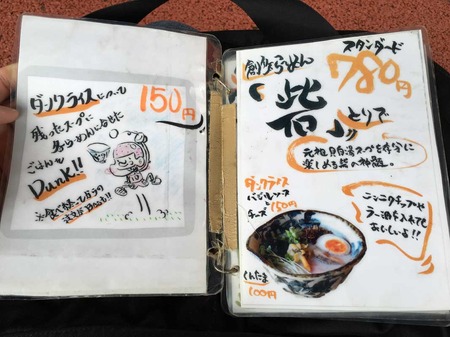 ダンクライスについて
150円
残ったスープに
ごはんを
Dunk!!
スタンダード
創作らーめん
780円
「砦」
とりで
元祖貝白湯スープを存分に
楽しめる砦の神髄。
ダンクライス
バジルソース
チーズ
150円
ニンニクチップや
ラー油を入れても
おいしいよ!!
くんたま
100円